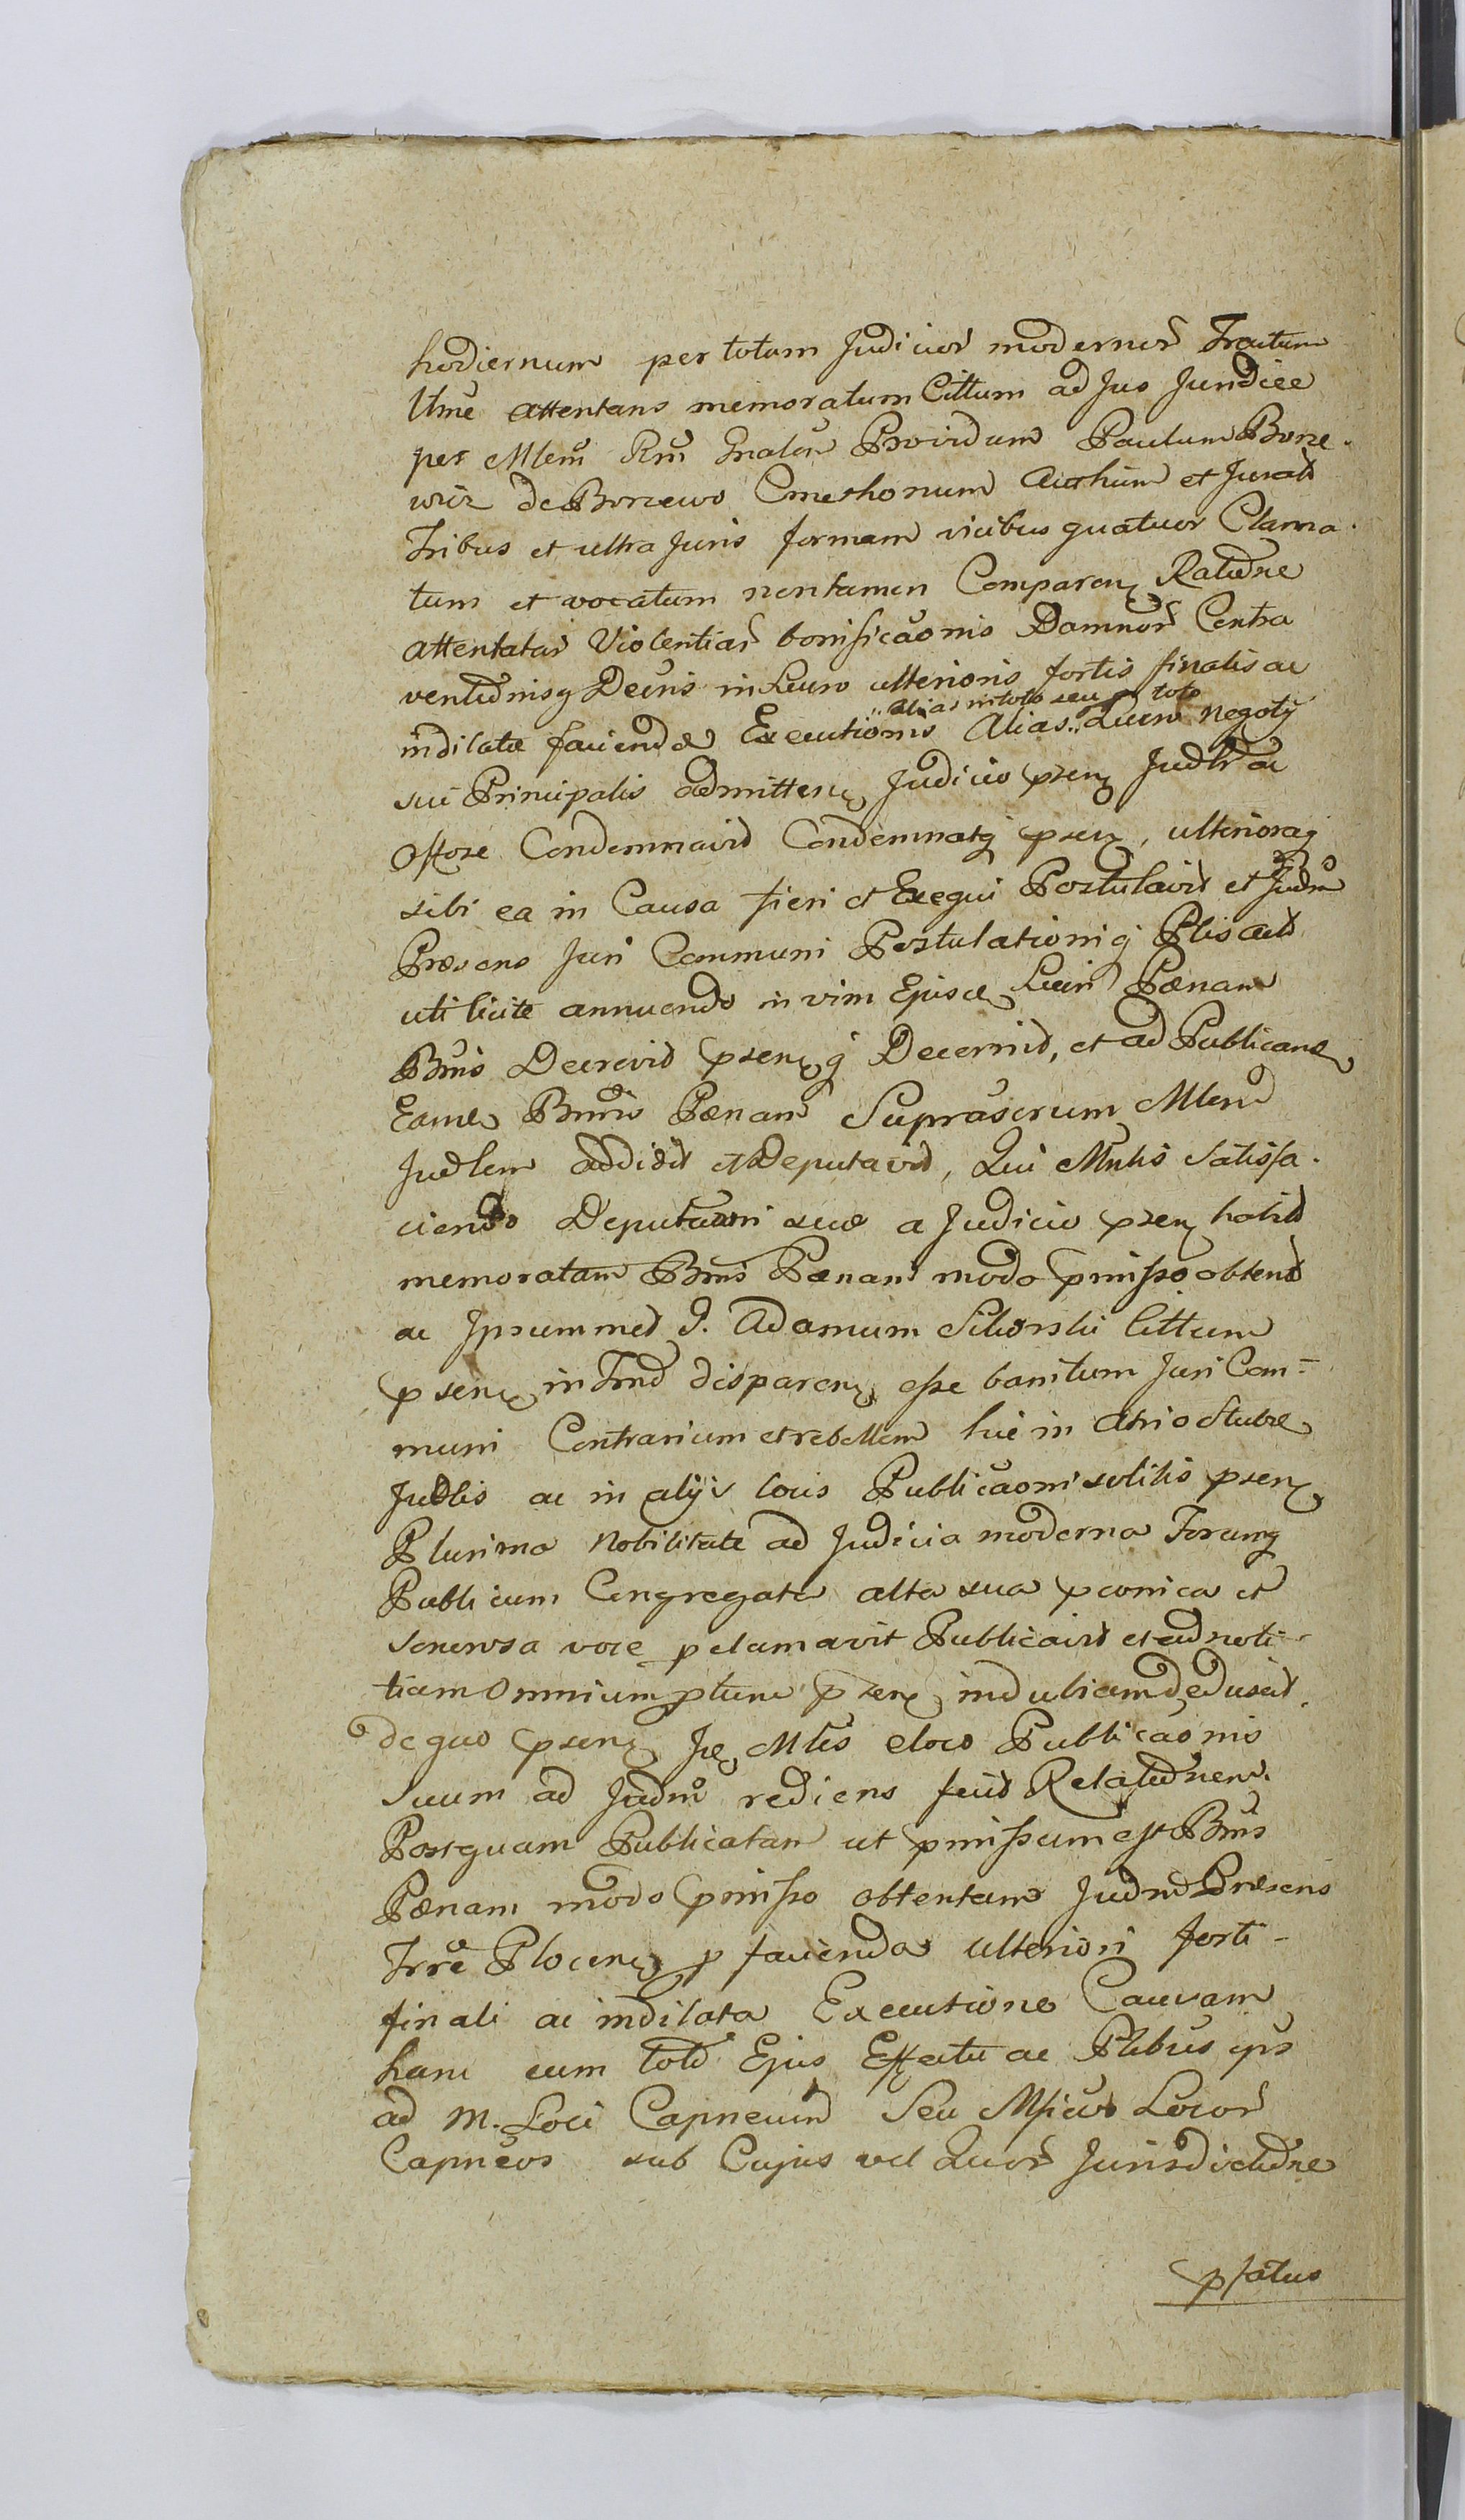 hodiernum per totum Judicior modernor Tractum
Ulme attentans memoratum Cittum ad Jus Juridice
per Mlem Rm Gnalem Providum Paulum Borze-
wicz de Borzewo Cmethonum Authum et Jurat
Tribus et ultra Juris formam vicibus quatuor Clama-
tum et vocatum nontamen Comparen Ratione
attentatar Violentiar bonificaonis Damnor Contra
ventionisq Decris in Lucro ulterioris fortis finalis ac
alias in toto seu pr toto
indilatæ faciendæ Executionis Alias Lucro negotÿ
sui Principalis admitten Judicio psen Judlr ac
Oflose Condemnavit Condemnatq psen, ulterioraq
sibi ea in Causa fieri et Exequi Postulavit et Judm
Præsens Juri Communi Postulationiq Plis Act
uti licite annuendo in vim Ejusce Lucri Pænam
Bnis Decrevit psenq Decernit, et ad Publicand
Eame Bnis Pænam Suprascrum Mlem
Judlem addidit et Deputavit, Qui Mnlis Satisfa-
ciendo Deputaoni suæ a Judicio psen habit
memoratam Bnis Pænam modo pmisso obtent
ac Ipsummet G. Adamum Sikorski Cittum
psen in Tno disparen esse banitum Juri Com-
muni Contrarium et rebellem hic in Atrio Stubæ
Judlis ac in alÿs locis Publicaoni solitis psen
Plurima Nobilitate ad Judicia moderna Forumq
Publicum Congregata alta sua pconica et
Sonorosa voce pclamavit Publicavit et ad noti-
tiam Omnium ptunc psen indubiam deduxit.
de quo psen Je Mlis eloco Publicaonis
Suum ad Judm rediens fecit Relationem.
Postquam Publicatam ut pmissum est Bnis
Pænam modo pmisso obtentam Judm Præsens
Trre Plocen p facienda ulteriori forti
finali ac indilata Executione Causam
hanc cum toto Ejus Effectu ac Plibus ips
ad M. Loci Capneum Seu Mficos Locor
Capneos sub Cujus vel Quor Jurisdictione
pfatus